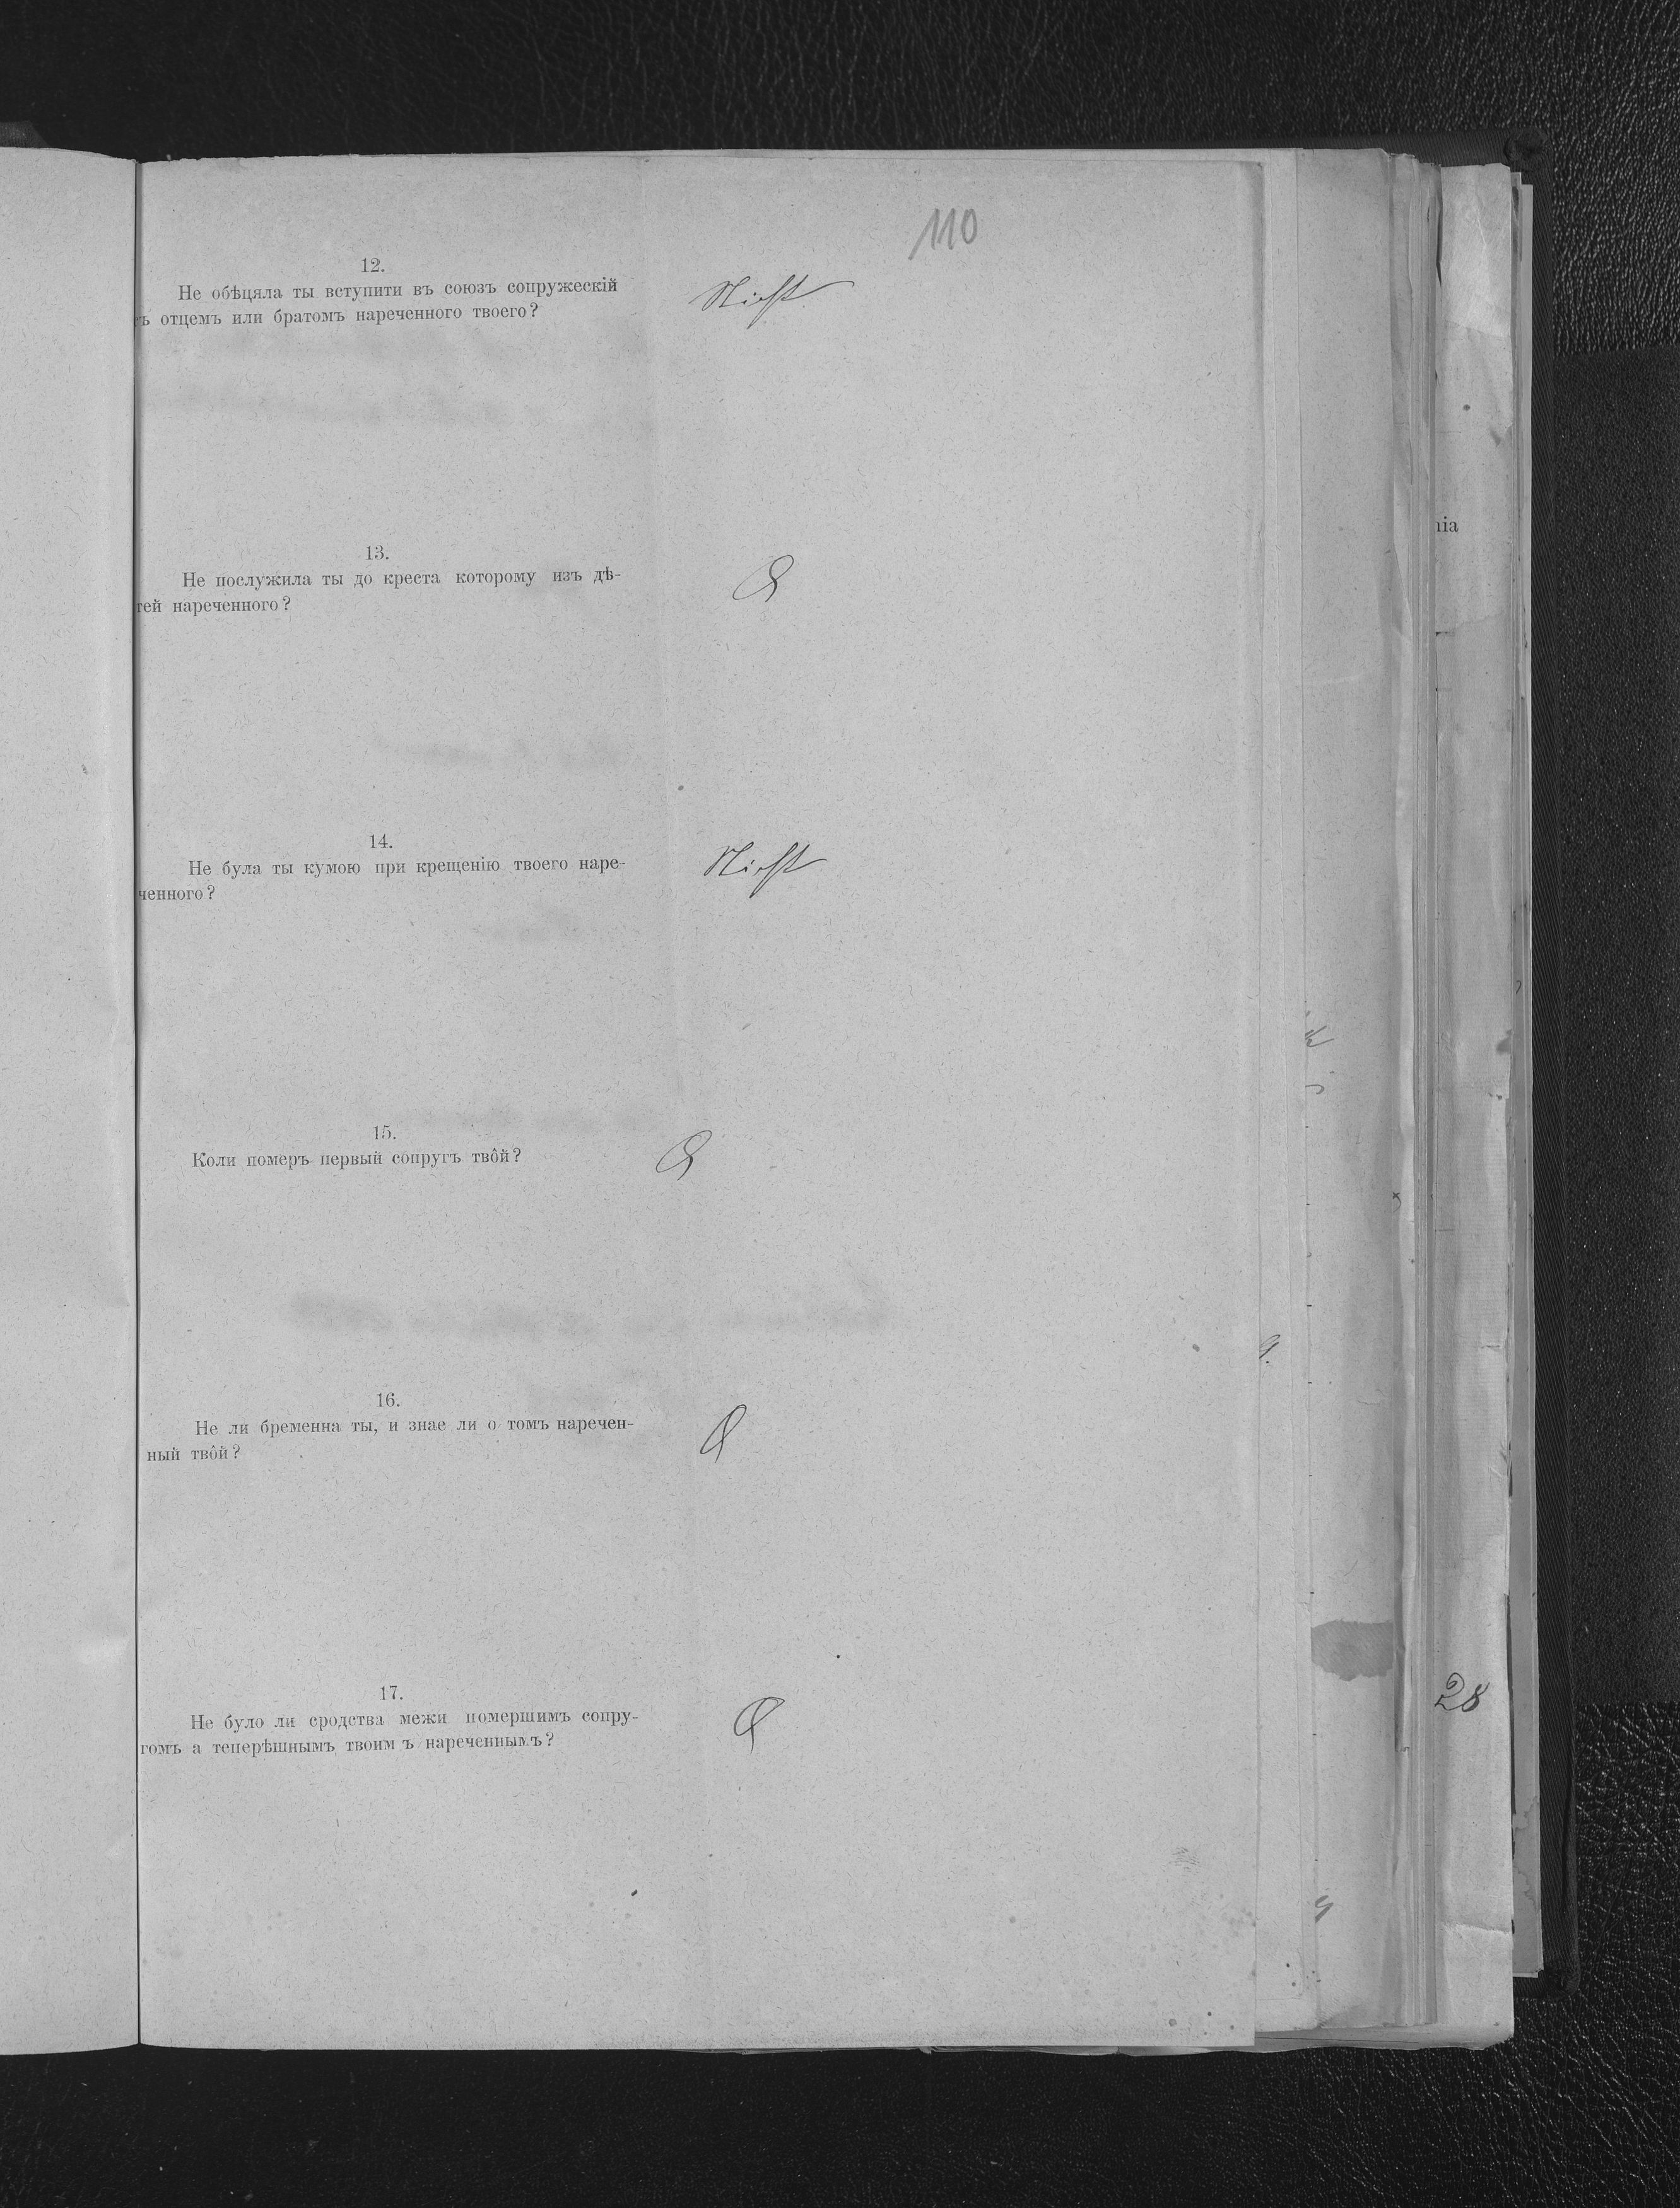 110
12.
Не обѣцяла ты вступити въ союзъ сопружескій
ъ отцемъ или братомъ нареченного твоего?
Nicht
13.
Не послужила ты до креста которому изъ дѣ-
тей нареченного?
14.
Не була ты кумою при крещенію твоего наре-
ченного?
Nicht
15.
Коли померъ первый сопругъ твôй?
16.
Не ли бременна ты, и знае ли о томъ наречен-
ный твôй?
17.
Не було ли сродства межи помершимъ сопру-
гомъ а теперѣшнымъ твоим ъ нареченнымъ?
nia
28